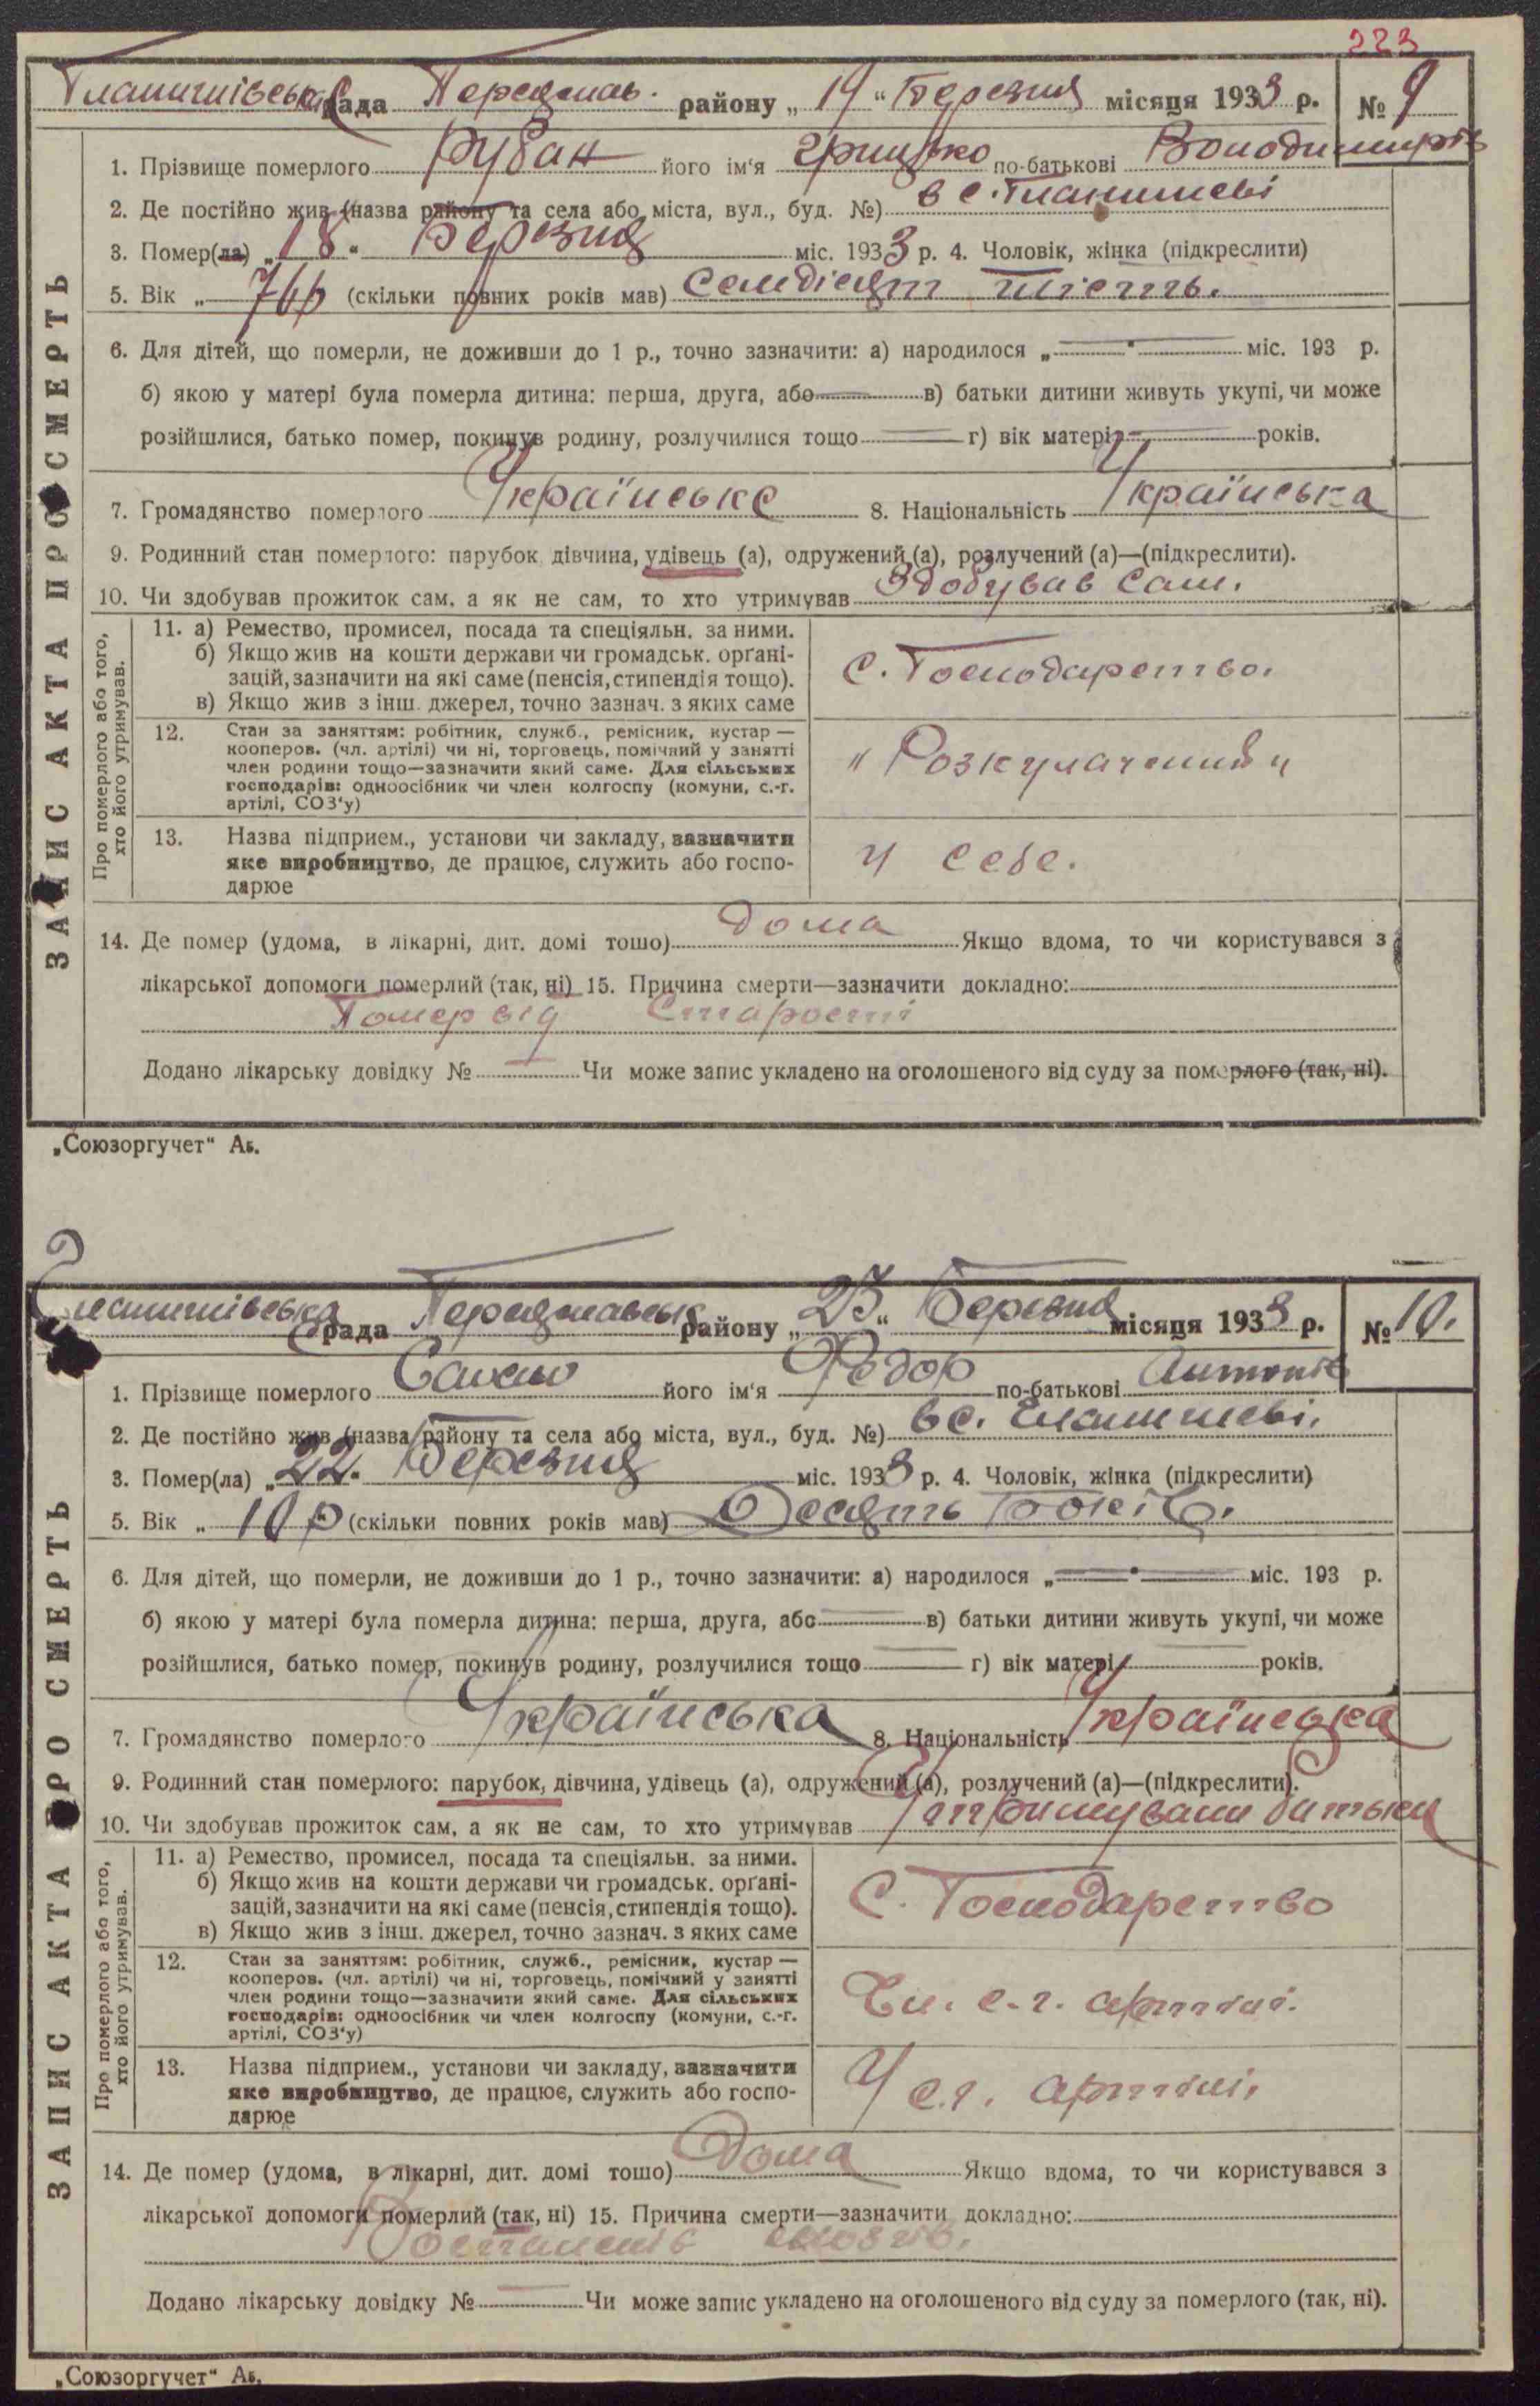 223
Гланишівська рада Переяслав. району „ 19 “ Березня місяця 1933 р. № 9
1. Прізвище померлого Рубан його ім‘я Грицько по-батькові Володимирів
2. Де постійно жив (назва району та села або міста, вул., буд. №) в с. Гланишеві
3. Помер(ла) „ 18 “ Березня міс. 1933 р. 4. Чоловік, жінка (підкреслити)
5. Вік „ 76 р (скільки повних років мав) Семдісят шість.
6. Для дітей, що померли, не доживши до 1 р., точно зазначити: а) народилося „ “ міс. 193 р.
б) якою у матері була померла дитина: перша, друга, або в) батьки дитини живуть укупі, чи може
розійшлися, батько помер, покинув родину, розлучилися тощо г) вік матері років.
7. Громадянство померлого Українське 8. Національність Українська
9. Родинний стан померлого: парубок, дівчина, удівець (а), одружений (а), розлучений (а)—(підкреслити).
10. Чи здобував прожиток сам, а як не сам, то хто утримував Здобував сам.
ЗАПИС АКТА ПРО СМЕРТЬ
Про померлого або того,
хто його утримував.
11. а) Ремество, промисел, посада та спеціяльн. за ними.
б) Якщо жив на кошти держави чи громадськ. орґані-
зацій, зазначити на які саме (пенсія, стипендія тощо).
в) Якщо жив з інш. джерел, точно зазнач. з яких саме
С. Господарство.
12. Стан за заняттям: робітник, служб., ремісник, кустар —
кооперов. (чл. артілі) чи ні, торговець, помічний у занятті
член родини тощо—зазначити який саме. Для сільських
господарів: одноосібник чи член колгоспу (комуни, с.-г.
артілі, СОЗ‘у)
„ Розкулачений „
13. Назва підприєм., установи чи закладу, зазначити
яке виробництво, де працює, служить або госпо-
дарює
У себе.
14. Де помер (удома, в лікарні, дит. домі тошо) Дома Якщо вдома, то чи користувався з
лікарської допомоги померлий (так, ні) 15. Причина смерти—зазначити докладно:
Помер від Старості
Додано лікарську довідку № Чи може запис укладено на оголошеного від суду за померлого (так, ні).
„Союзоргучет“ Аб.
Гланишівська рада Переяславськ району „ 23 “ Березня місяця 1933 р. № 10.
1. Прізвище померлого його ім‘я Федор по-батькові Антонів
2. Де постійно жив (назва району та села або міста, вул., буд. №) в с. Гланишеві.
3. Помер(ла) „ 22 “ Березня міс. 1933 р. 4. Чоловік, жінка (підкреслити)
5. Вік „ 10 р (скільки повних років мав) Десять Років.
6. Для дітей, що померли, не доживши до 1 р., точно зазначити: а) народилося „ “ міс. 193 р.
б) якою у матері була померла дитина: перша, друга, або в) батьки дитини живуть укупі, чи може
розійшлися, батько помер, покинув родину, розлучилися тощо г) вік матері років.
7. Громадянство померлого Українська 8. Національність Українська
9. Родинний стан померлого: парубок, дівчина, удівець (а), одружений (а), розлучений (а)—(підкреслити).
10. Чи здобував прожиток сам, а як не сам, то хто утримував Утримували батьки
ЗАПИС АКТА ПРО СМЕРТЬ
Про померлого або того,
хто його утримував.
11. а) Ремество, промисел, посада та спеціяльн. за ними.
б) Якщо жив на кошти держави чи громадськ. орґані-
зацій, зазначити на які саме (пенсія, стипендія тощо).
в) Якщо жив з інш. джерел, точно зазнач. з яких саме
С. Господарство
12. Стан за заняттям: робітник, служб., ремісник, кустар —
кооперов. (чл. артілі) чи ні, торговець, помічний у занятті
член родини тощо—зазначити який саме. Для сільських
господарів: одноосібник чи член колгоспу (комуни, с.-г.
артілі, СОЗ‘у)
Чл. с.-г. артілі.
13. Назва підприєм., установи чи закладу, зазначити
яке виробництво, де працює, служить або госпо-
дарює
У с.г. артілі,
14. Де помер (удома, в лікарні, дит. домі тошо) Дома Якщо вдома, то чи користувався з
лікарської допомоги померлий (так, ні) 15. Причина смерти—зазначити докладно:
Додано лікарську довідку № Чи може запис укладено на оголошеного від суду за померлого (так, ні).
„Союзоргучет“ Аб.